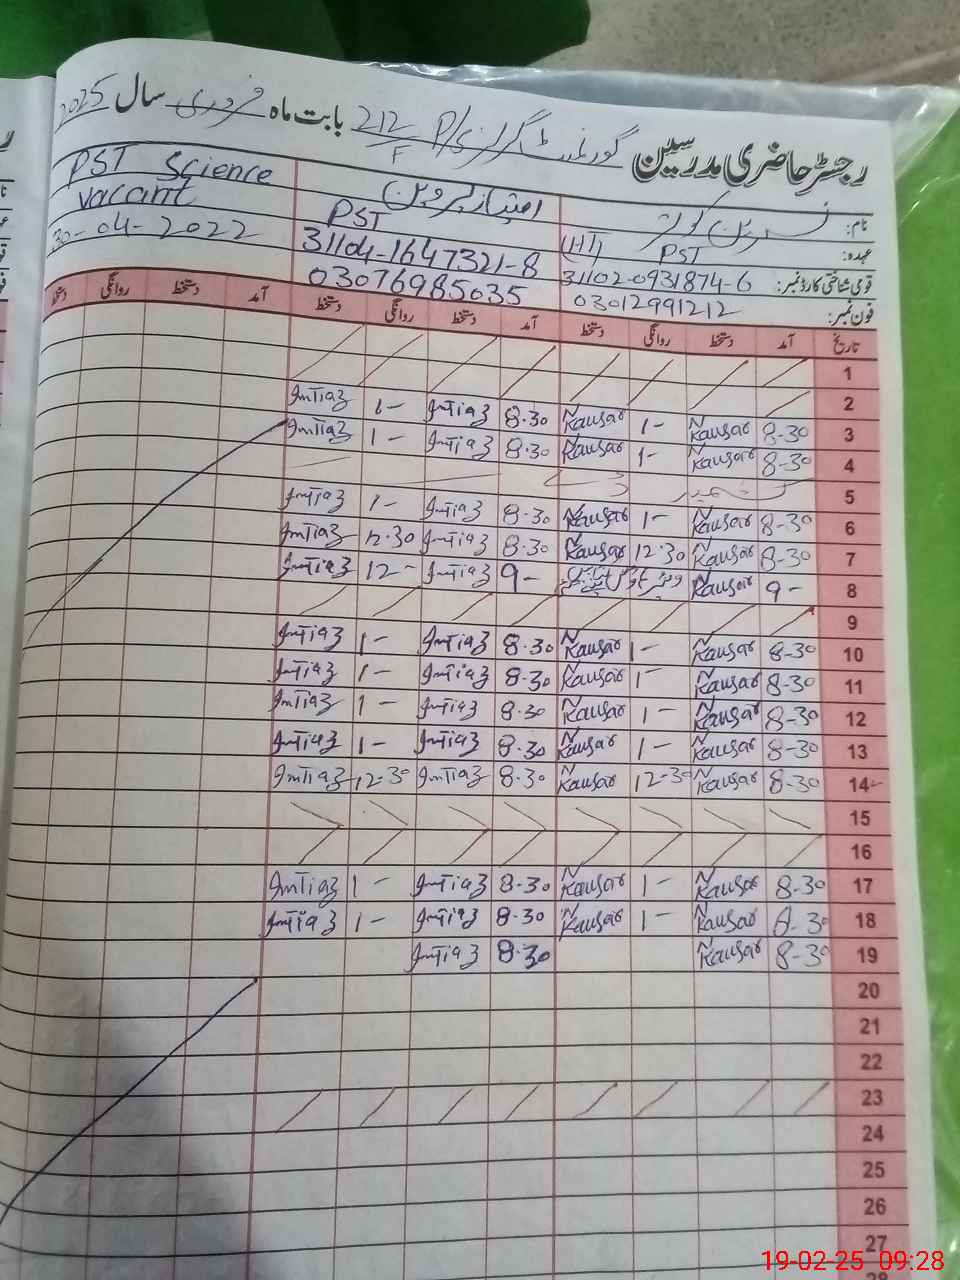 رجسٹر حاضری مدرسین گورنمنٹ گرلز P/S 212/F بابت ماہ فروری سال 2025
نام: نسرین کوثر امتیاز پروین PST Science
عہدہ: PST (HT) PST vacant
قومی شناختی کارڈ نمبر: 31102-0931874-6 31104-1647321-8 30-04-2022
فون نمبر: 03012991212 03076985035
تاریخ آمد دستخط روانگی دستخط آمد دستخط روانگی دستخط آمد دستخط روانگی دستخط
1
2
3 8-30 Kausar 1- Kausar 8.30 Imtiaz 1- Imtiaz
4 8-30 Kausar 1- Kausar 8.30 Imtiaz 1- Imtiaz
5
6 8-30 Kausar 1- Kausar 8.30 Imtiaz 1- Imtiaz
7 8-30 Kausar 12.30 Kausar 8.30 Imtiaz 12.30 Imtiaz
8 9- Kausar 9- Imtiaz 12- Imtiaz
9
10 8-30 Kausar 1- Kausar 8.30 Imtiaz 1- Imtiaz
11 8-30 Kausar 1- Kausar 8.30 Imtiaz 1- Imtiaz
12 8-30 Kausar 1- Kausar 8.30 Imtiaz 1- Imtiaz
13 8-30 Kausar 1- Kausar 8.30 Imtiaz 1- Imtiaz
14 8-30 Kausar 12-30 Kausar 8.30 Imtiaz 12-30 Imtiaz
15
16
17 8-30 Kausar 1- Kausar 8.30 Imtiaz 1- Imtiaz
18 8-30 Kausar 1- Kausar 8.30 Imtiaz 1- Imtiaz
19 8-30 Kausar 8.30 Imtiaz
20
21
22
23
24
25
26
27
28
19-02-25 09:28